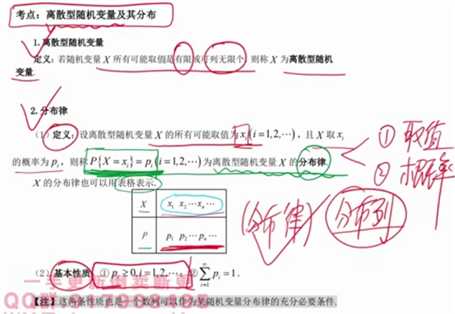 考点：离散型随机变量及其分布
1.离散型随机变量
定义：若随机变量 X 所有可能取值是有限或可列无限个，则称 X 为离散型随机
变量.
2.分布律
（1）定义：设离散型随机变量 X 的所有可能取值为 xᵢ(i=1,2,⋯)，且 X 取 xᵢ
① 取值
的概率为 pᵢ，则称 P{X=xᵢ}=pᵢ(i=1,2,⋯)为离散型随机变量 X 的分布律.
② 概率
X 的分布律也可以用表格表示.
X x₁ x₂⋯xₙ⋯
P p₁ p₂⋯pₙ⋯
(分布律) 分布列
（2）基本性质：①pᵢ≥0,i=1,2,⋯ ②∑pᵢ=1.
【注】这两条性质也是一个数列可以作为某随机变量分布律的充分必要条件.